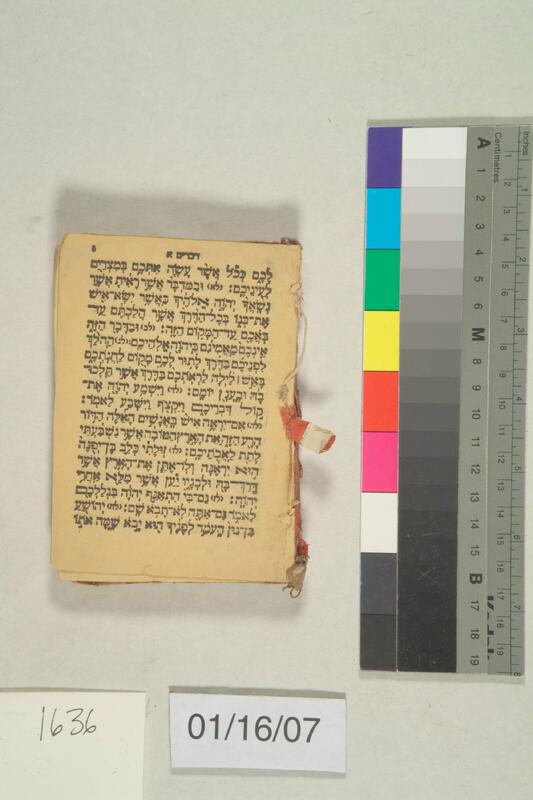 דברים א
6
לָכֶם כְּכֹל אֲשֶׁר עָשָׂה אִתְּכֶם בְּמִצְרַיִם
לְעֵינֵיכֶם: (לא) וּבַמִּדְבָּר אֲשֶׁר רָאִיתָ אֲשֶׁר
נְשָׂאֲךָ יְהוָֹה אֱלֹהֶיךָ כַּאֲשֶׁר יִשָּׂא־אִישׁ
אֶת־בְּנוֹ בְּכָל־הַדֶּרֶךְ אֲשֶׁר הֲלַכְתֶּם עַד־
בֹּאֲכֶם עַד־הַמָּקוֹם הַזֶּה: (לב) וּבַדָּבָר הַזֶּה
אֵינְכֶם מַאֲמִינִם בַּיהוָֹה אֱלֹהֵיכֶם: (לג) הַהֹלֵךְ
לִפְנֵיכֶם בַּדֶּרֶךְ לָתוּר לָכֶם מָקוֹם לַחֲנֹתְכֶם
בָּאֵשׁ לַיְלָה לַרְאֹתְכֶם בַּדֶּרֶךְ אֲשֶׁר תֵּלְכוּ־
בָהּ וּבֶעָנָן יוֹמָם: (לד) וַיִּשְׁמַע יְהוָֹה אֶת־
קוֹל דִּבְרֵיכֶם וַיִּקְצֹף וַיִּשָּׁבַע לֵאמֹר:
(לה) אִם־יִרְאֶה אִישׁ בָּאֲנָשִׁים הָאֵלֶּה הַדּוֹר
הָרָע הַזֶּה אֵת הָאָרֶץ הַטּוֹבָה אֲשֶׁר נִשְׁבַּעְתִּי
לָתֵת לַאֲבֹתֵיכֶם: (לו) זוּלָתִי כָּלֵב בֶּן־יְפֻנֶּה
הוּא יִרְאֶנָּה וְלוֹ־אֶתֵּן אֶת־הָאָרֶץ אֲשֶׁר
דָּרַךְ־בָּהּ וּלְבָנָיו יַעַן אֲשֶׁר מִלֵּא אַחֲרֵי
יְהוָֹה: (לז) גַּם־בִּי הִתְאַנַּף יְהוָֹה בִּגְלַלְכֶם
לֵאמֹר גַּם־אַתָּה לֹא־תָבֹא שָׁם: (לח) יְהוֹשֻׁעַ
בִּן־נוּן הָעֹמֵד לְפָנֶיךָ הוּא יָבֹא שָׁמָּה אֹתוֹ
Inches
Centimetres
A 1 2 3 4 5 6 M 8 9 10 11 12 13 14 15 B 17 18 19
1 2 3 4 5 6 7 8
Kodak
1636
01/16/07